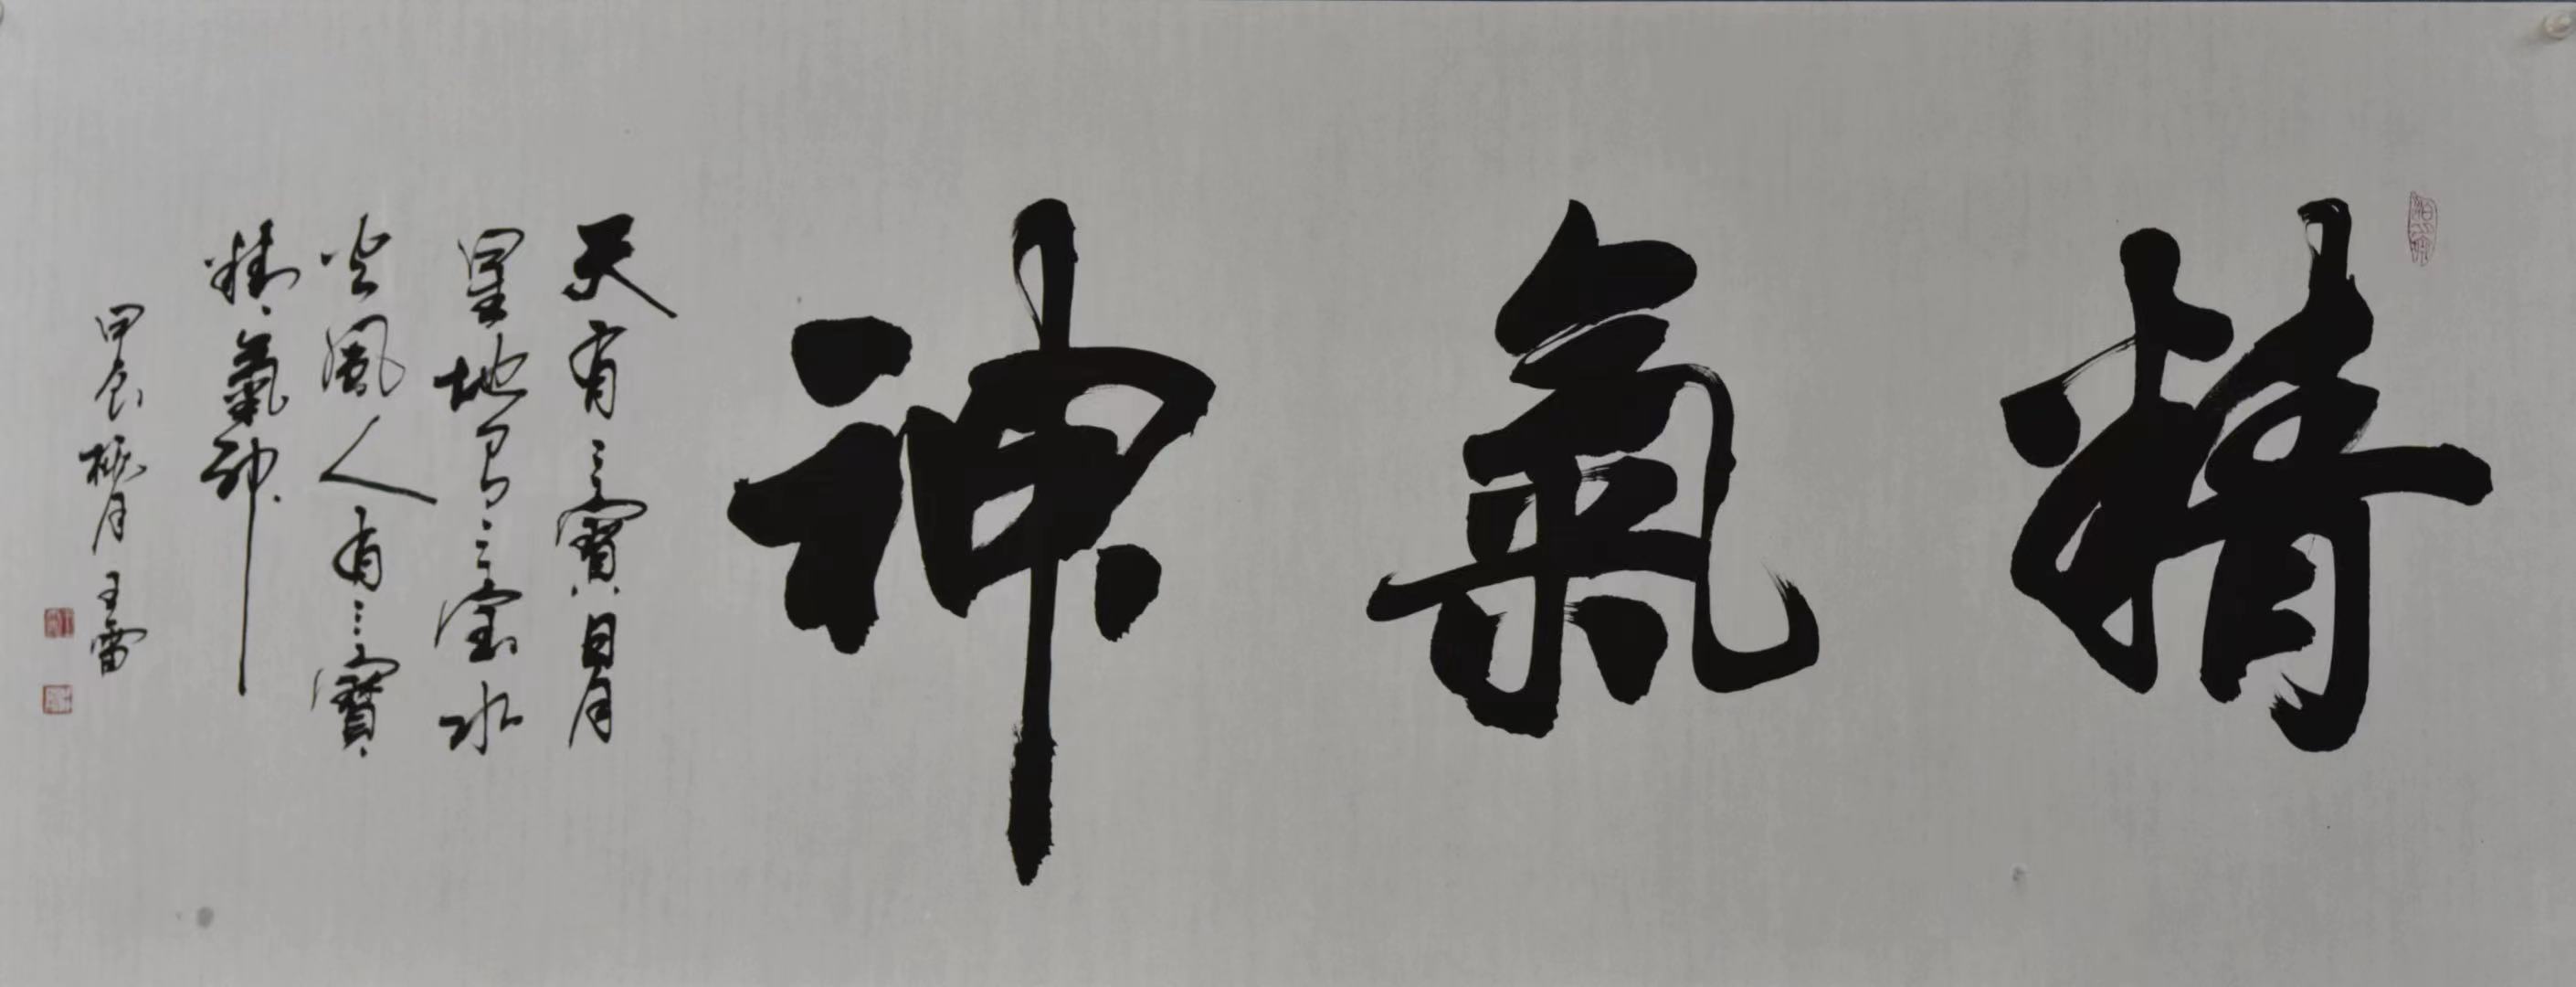 精氣神
天有三寶日月
星地有三寳水
火風人有三寶
精氣神
甲辰桃月王雷